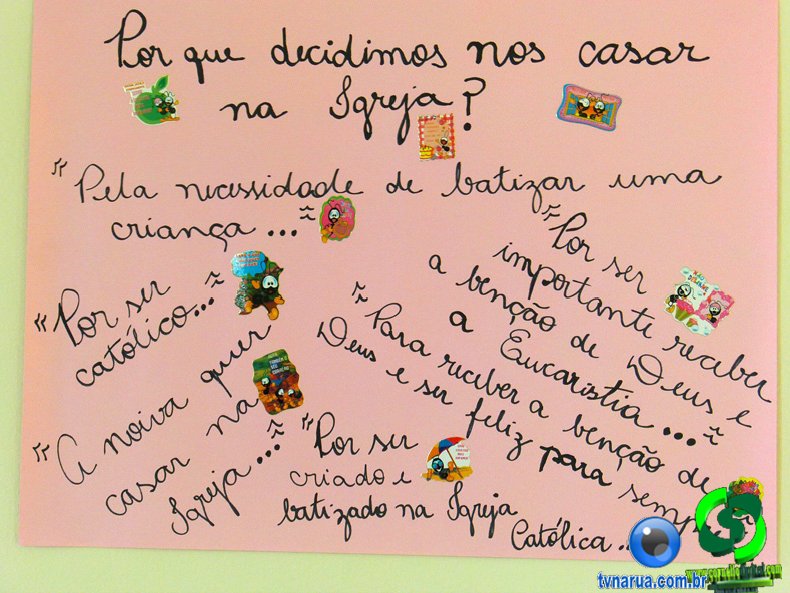 Por que decidimos nos casar
na Igreja?
"Pela necessidade de batizar uma
criança..."
"Por ser
católico..."
"Por ser
importante receber
a benção de Deus e
a Eucaristia..."
"Para receber a benção de
Deus e ser feliz para
"A noiva quer
casar na
Igreja..."
"Por ser
criado e
batizado na Igreja
Católica..
tvnarua.com.br